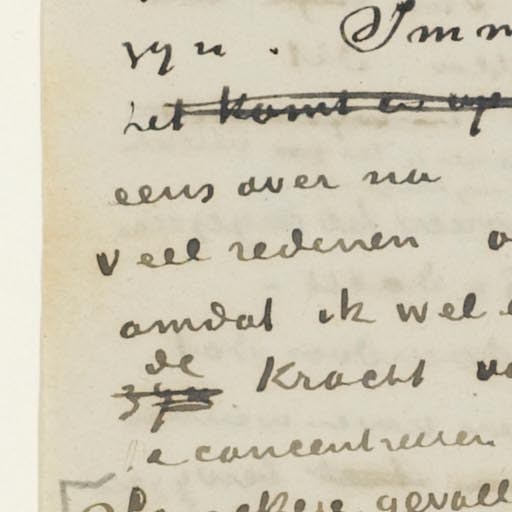 zyn. Imm
het komt er op
eens over na
veel redenen
omdat ik wel
de
zyn Kracht
te concentreeren
gevall